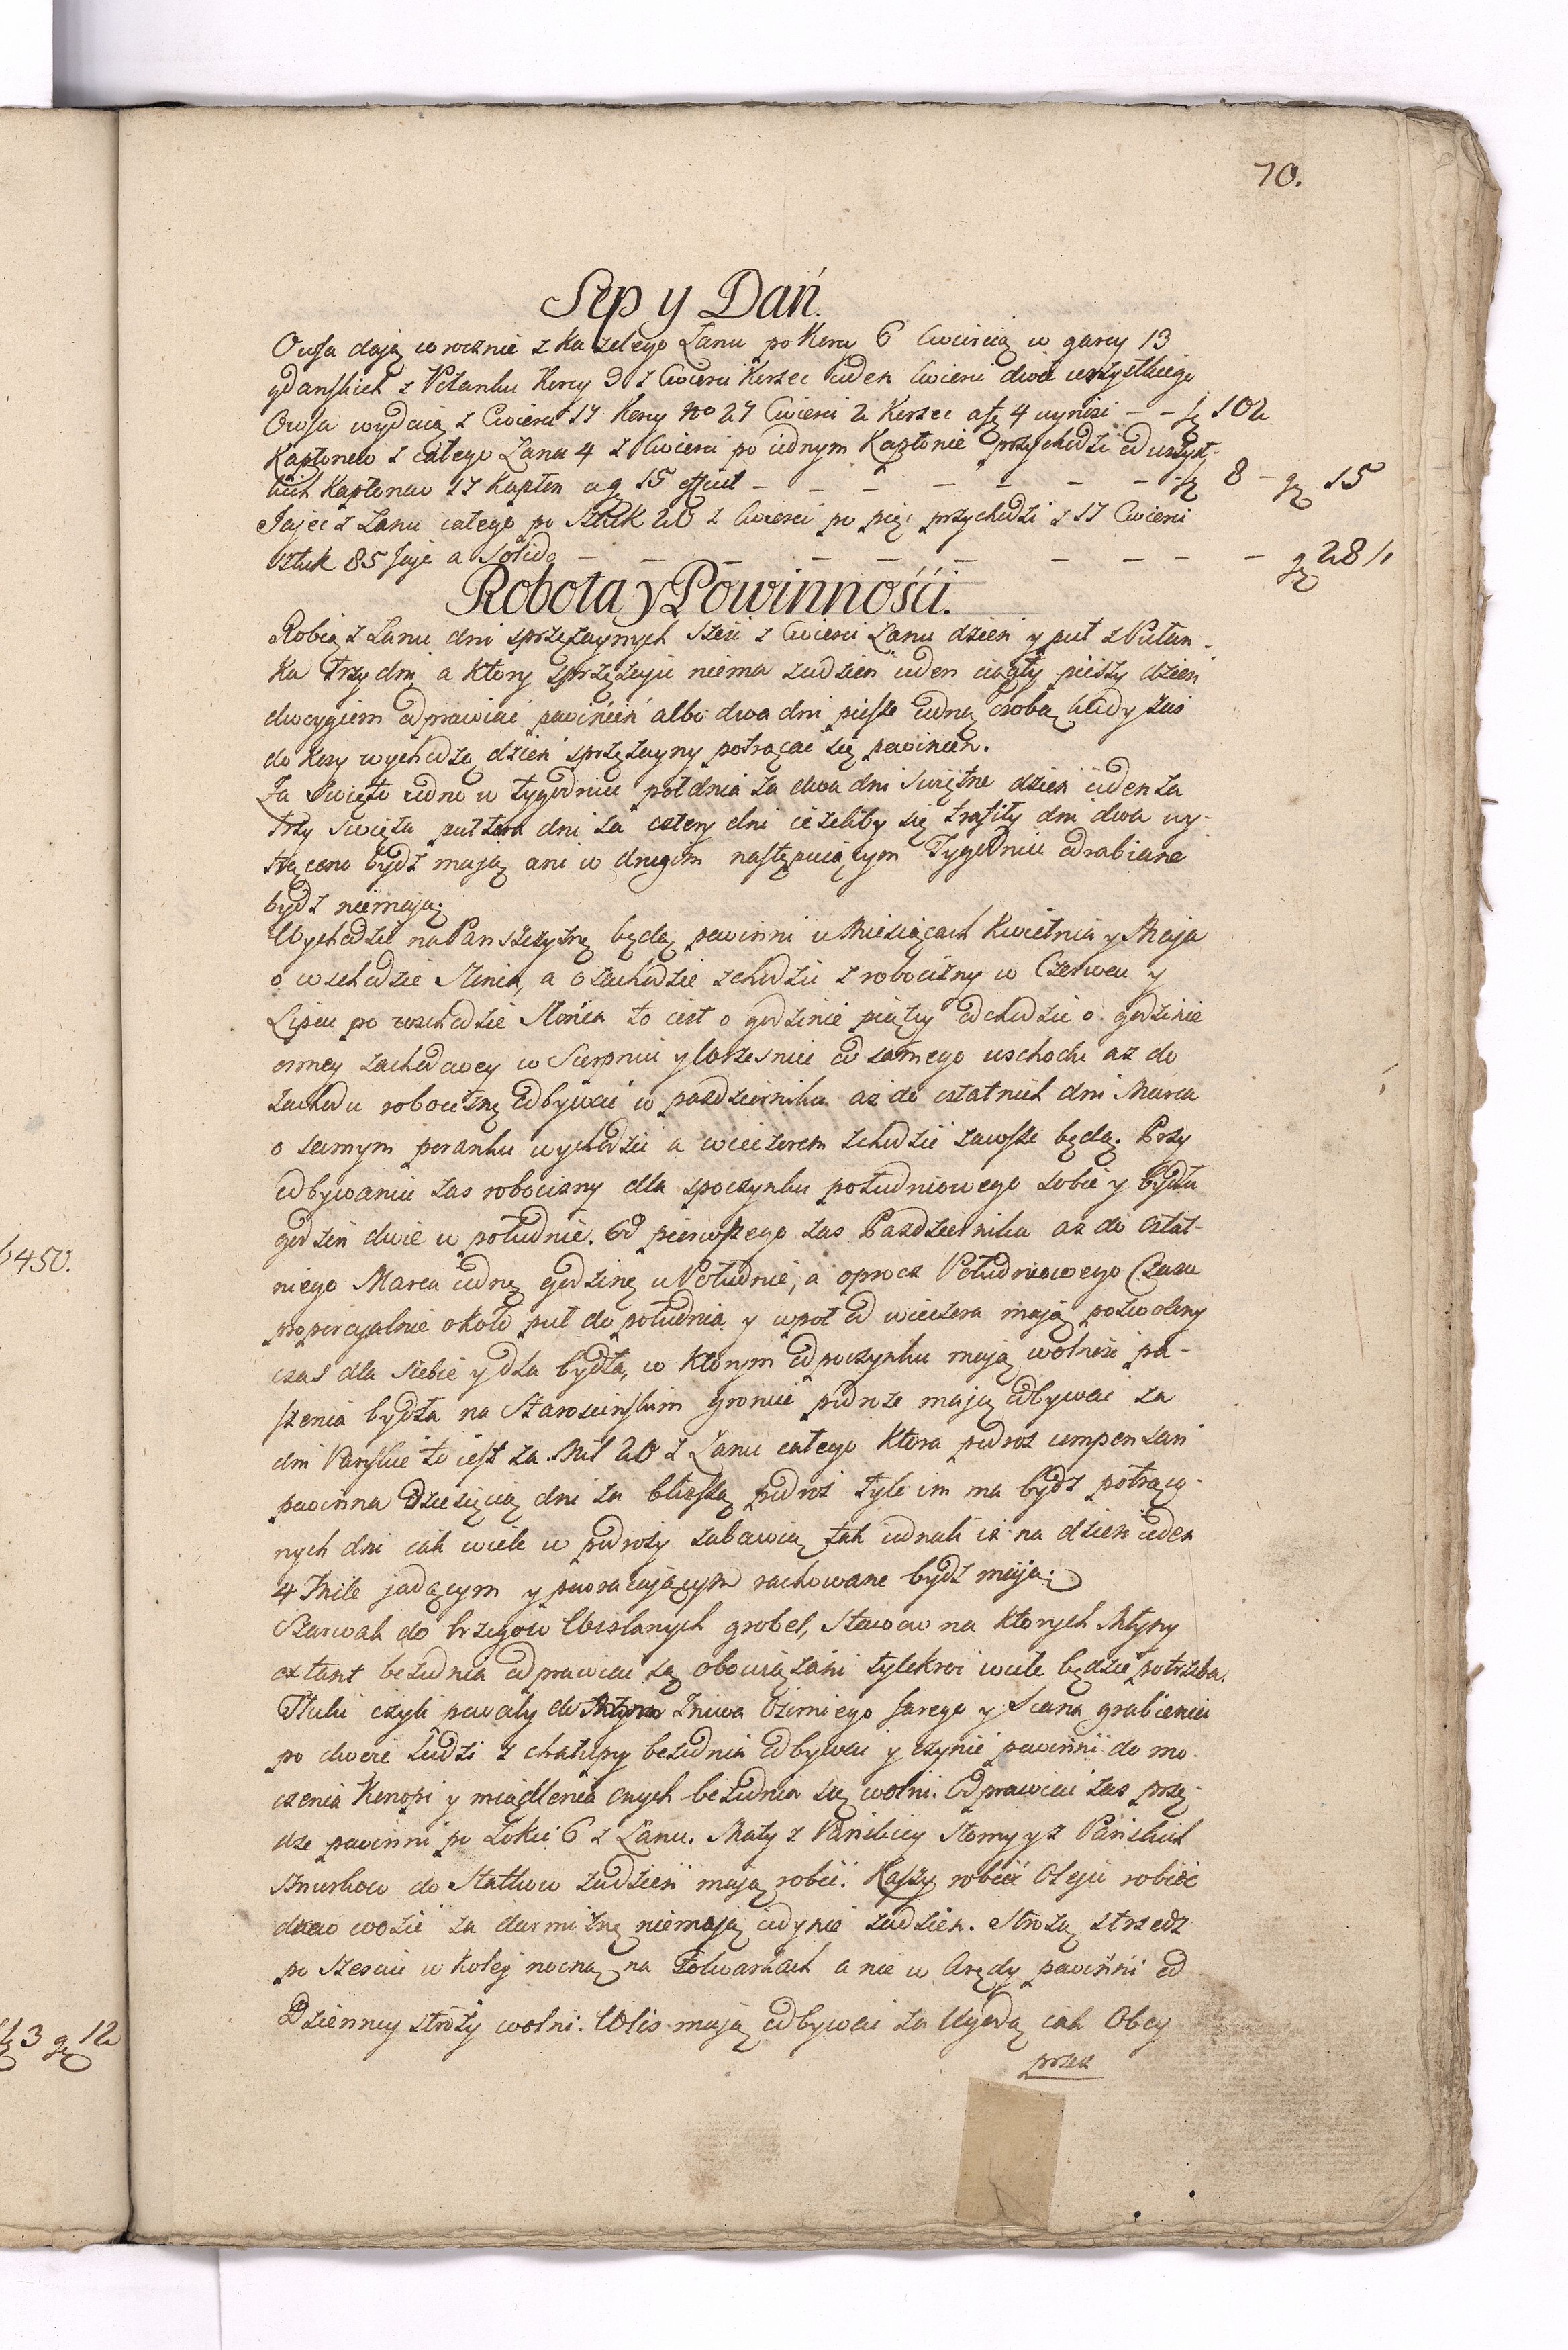 70.
Sep y Dań.
Owsa dają corocznie z każdego Łanu po Korcu 6 cwiercią w garcy 13
gdanskich z Połanku Korcy 3 z Cwierci Korzec ieden Cwierci dwie wszystkiego
Owsa wydaią z Cwierci 17 Korcy No 27 Cwierci 2 Korzec a fł 4 wynosi - - fł 102
Kapłonow z całego Łanu 4 z Cwierci po iednym Kapłonie przychodzi od wszyst-
kich Kapłonow 17 Kapłon a gr 15 efficit - - - - - - - fł 8 - gr 15
Jajec z Łanu całego po Sztuk 20 z Cwierci po pięc przychodzi z 17 Cwierci
sztuk 85 Jaje a Solida - - - - - - - - - gr 28 1/
Robota y Powinności.
Robią z Łanu dni sprzęzaynych Szesc z Cwierci Łanu dzien y puł z Pułan-
ka trzy dni a ktory sprzęzaju niema zadzien ieden ciągły pieszy dzien
dwoygiem odprawiać powinien albo dwa dni piesze iedną osobą kiedy zas
do Kosy wychodzą dzien sprzęzayny potrącac się powinien.
Za Swięto iedno w tygodniu poł dnia za dwa dni Swiętne dzien ieden za
trzy Swięta puł tora dni za cztery dni iezeliby się trafiły dni dwa wy-
trącono bydz mają ani w drugim następuiącym Tygodniu odrabiane
bydz niemają.
Wychodzić na Panszczyznę będą powinni w Miesiącach Kwietnia y Maja
o wschodzie Słonca, a o zachodzie schodzic z robocizny w Czerwcu y
Lipcu po wschodzie Słońca to iest o godzinie piątey odchodzic o godzinie
osmey zachodowey w Sierpniu y Wrzesniu od samego wschodu az do
zachodu robociznę odbywać w pazdzierniku az do ostatnich dni Marca
o samym poranku wychodzić a wieczorem schodzić zawsze będą. Przy
odbywaniu zas robocizny dla spoczynku południowego sobie y bydłu
godzin dwie w południe. Od pierwszego zas Pazdziernika az do ostat-
niego Marca iednę godzinę w Południe, a oprocz Południowego Czasu
proporcyalnie około puł do południa y wpoł od wieczora mają pozwolony
czas dla siebie y dla bydła, w ktorym odpoczynku mają wolnosc pa-
szenia bydła na Starosciniskim groncie podroze mają odbywac za
dni Panskie to iest za Mil 20 z Łanu całego ktora podroz
powinna dziesięcią dni za blizszą podroz tyle im ma bydz potrąco-
nych dni iak wiele w podrozy zabawią tak iednak iz na dzien ieden
4 Mile jadącym y powracającym rachowane bydz mają.
Szarwak do brzegow Wislanych grobel, Stawow na ktorych Młyny
extant bezednia odprawiac są obowiązani tylekroc wiele będzie potrzeba.
Tłuki czyli powaby do Zniwa Ozimiego Jarego y Siana grabienia
po dwoie Ludzi z chałupy bezednia odbywac y czynic powinni do mo-
czenia Konopi y miądlenia onych bezednia są wolni. Odprawiac zas przę-
dze powinni po Łokci 6 z Łanu. Maty z Panskiey Słomy y z Panskich
sznurkow do Statkow zadzien mają robić. Kaszy robić Oleju robić
drew wozic za darmiznę niemają iedynie zadzien. Strozą strzedz
po szesciu w Koley nocną na Folwarkach a nie w Arędy powinni od
Dzienney strózy wolni. Wlis mają odbywac za Ugodą iak Obcy
przez
6450.
fł 3 gr 12